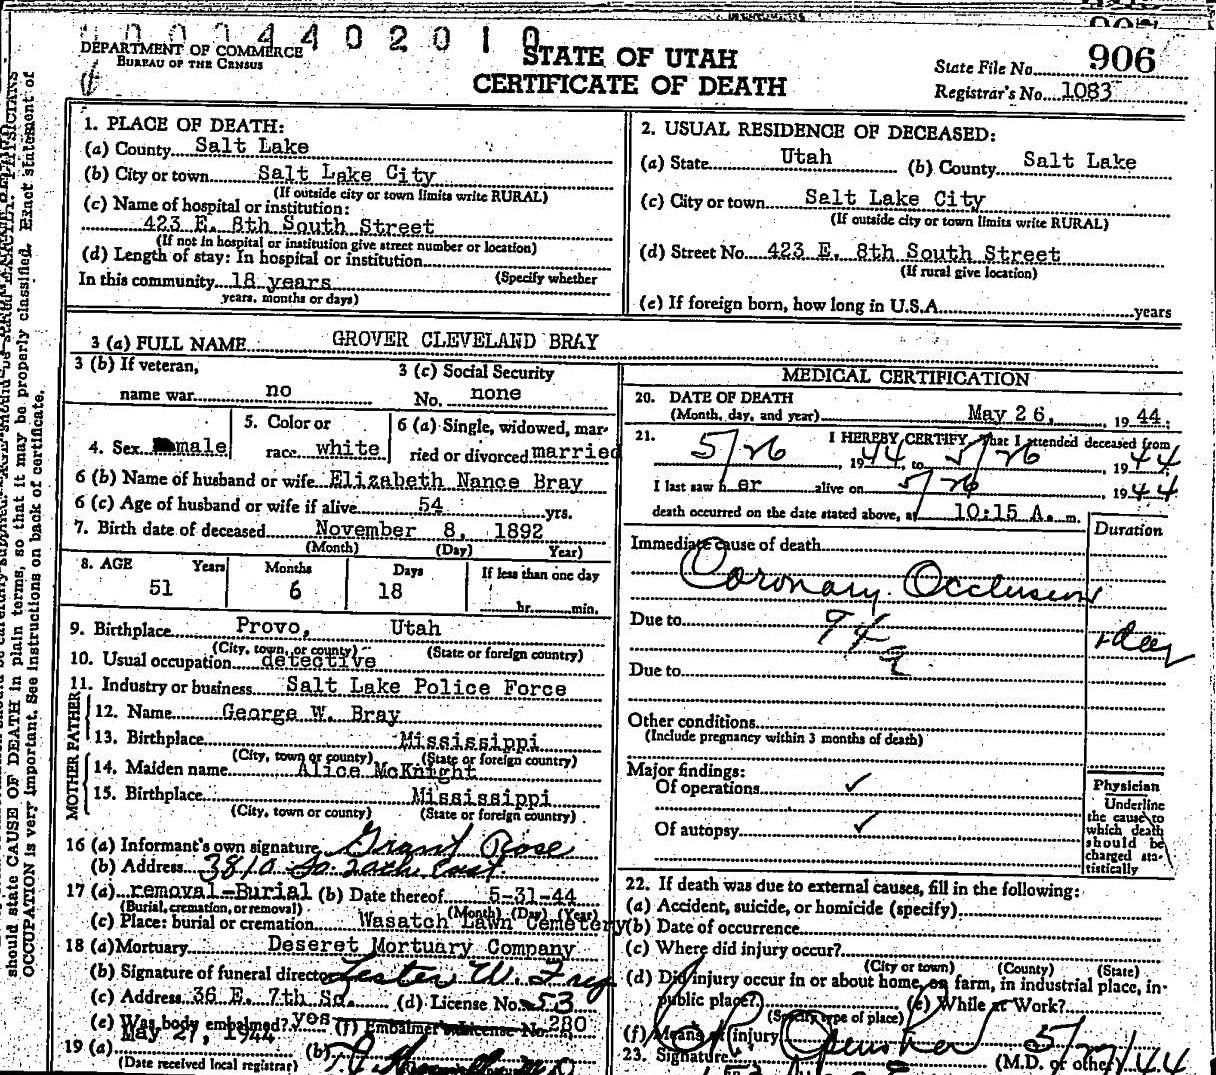 0004402010
DEPARTMENT OF COMMERCE
BUREAU OF THE CENSUS
STATE OF UTAH
CERTIFICATE OF DEATH
State File No. 906
Registrar's No. 1083
1. PLACE OF DEATH:
(a) County Salt Lake
(b) City or town Salt Lake City
(If outside city or town limits write RURAL)
(c) Name of hospital or institution:
423 E. 8th South Street
(If not in hospital or institution give street number or location)
(d) Length of stay: In hospital or institution
(Specify whether
In this community 18 years
years, months or days)
2. USUAL RESIDENCE OF DECEASED:
(a) State Utah (b) County Salt Lake
(c) City or town Salt Lake City
(If outside city or town limits write RURAL)
(d) Street No. 423 E. 8th South Street
(If rural give location)
(e) If foreign born, how long in U.S.A. years
3 (a) FULL NAME GROVER CLEVELAND BRAY
3 (b) If veteran,
name war no
3 (c) Social Security
No. none
4. Sex male
5. Color or
race white
6 (a) Single, widowed, mar-
ried or divorced married
6 (b) Name of husband or wife Elizabeth Nance Bray
6 (c) Age of husband or wife if alive 54 yrs.
7. Birth date of deceased November 8, 1892
(Month) (Day) Year)
8. AGE Years Months Days If less than one day
51 6 18 hr. min.
9. Birthplace Provo, Utah
(City, town, or county) (State or foreign country)
10. Usual occupation detective
11. Industry or business Salt Lake Police Force
FATHER
12. Name George W. Bray
13. Birthplace Mississippi
(City, town or county) (State or foreign country)
MOTHER
14. Maiden name Alice McKnight
15. Birthplace Mississippi
(City, town or county) (State or foreign country)
16 (a) Informant's own signature Grant Rose
(b) Address 3810 So. 20th East
17 (a) removal-Burial (b) Date thereof 5-31-44
(Burial, cremation, or removal) (Month) (Day) (Year)
(c) Place: burial or cremation Wasatch Lawn Cemetery
18 (a) Mortuary Deseret Mortuary Company
(b) Signature of funeral director Lester W. Frey
(c) Address 36 E. 7th So. (d) License No. 53
(e) Was body embalmed? yes (f) Embalmer's License No. 280
19 (a) May 27, 1944 (b)
(Date received local registrar)
MEDICAL CERTIFICATION
20. DATE OF DEATH
(Month, day, and year) May 26, 1944
21. I HEREBY CERTIFY, that I attended deceased from
5/26, 1944, to 5/26, 1944
I last saw h er alive on 5/26, 1944
death occurred on the date stated above, at 10:15 A. m.
Duration
Immediate cause of death
Coronary Occlusion
Due to 94a
1 day
Due to
Other conditions
(Include pregnancy within 3 months of death)
Major findings:
Of operations ✓
Of autopsy ✓
Physician
Underline
the cause to
which death
should be
charged sta-
tistically
22. If death was due to external causes, fill in the following:
(a) Accident, suicide, or homicide (specify)
(b) Date of occurrence
(c) Where did injury occur?
(City or town) (County) (State)
(d) Did injury occur in or about home, on farm, in industrial place, in
public place? (e) While at Work?
(Specify type of place)
(f) Means of injury
23. Signature 5/27/44
(M.D. or other)
should state CAUSE OF DEATH in plain terms, so that it may be properly classified. Exact statement of
OCCUPATION is very important. See instructions on back of certificate.